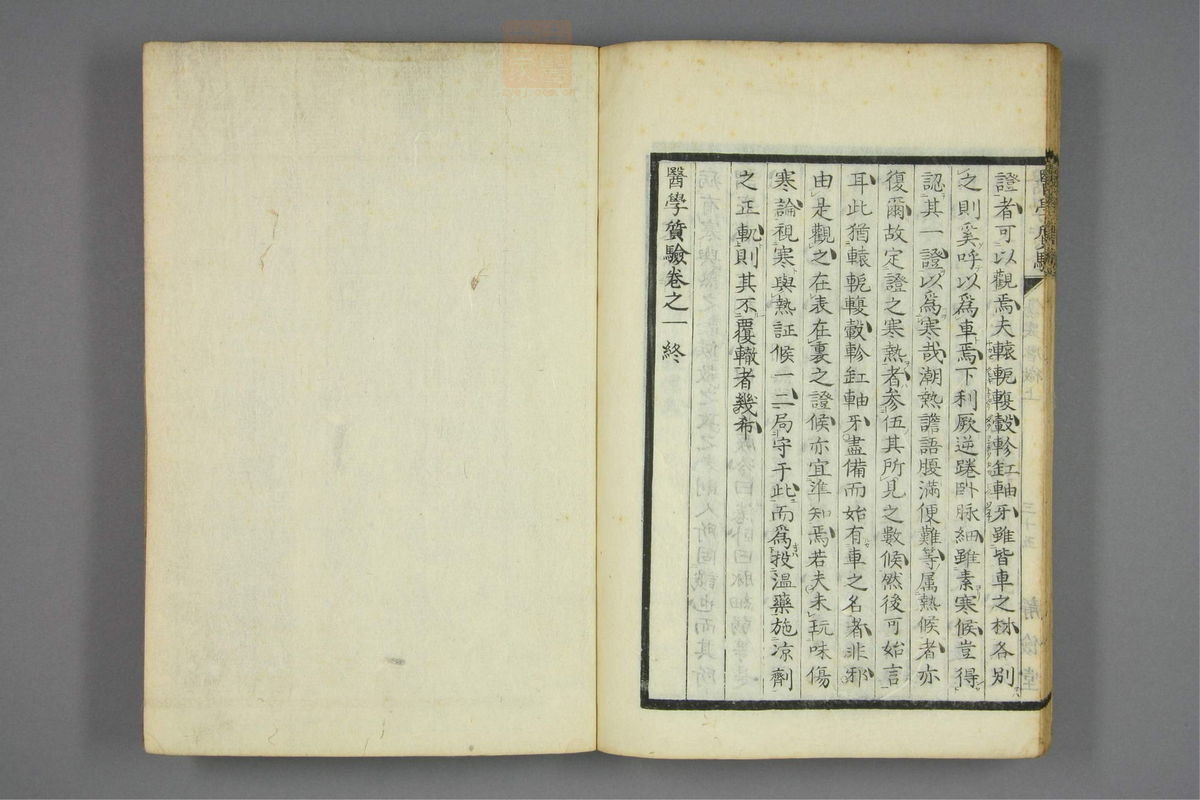 證者可以觀焉夫轅軛輹轂軫釭軸牙雖皆車之材各別
之則奚呼以爲車焉下利厥逆踡臥脉細雖素寒候豈得
認其一證以爲寒哉潮熱譫語腹滿便難等属熱候者亦
復爾故定證之寒熱者参伍其所見之數候然後可始言
耳此猶轅軛輹轂軫釭軸牙盡備而始有車之名者非邪
由是觀之在表在裏之證候亦宜準知焉若夫未玩味傷
寒論視寒與熱証候一二局守于此而爲投溫藥施涼劑
之正軌則其不覆轍者幾希
醫學質驗卷之一終